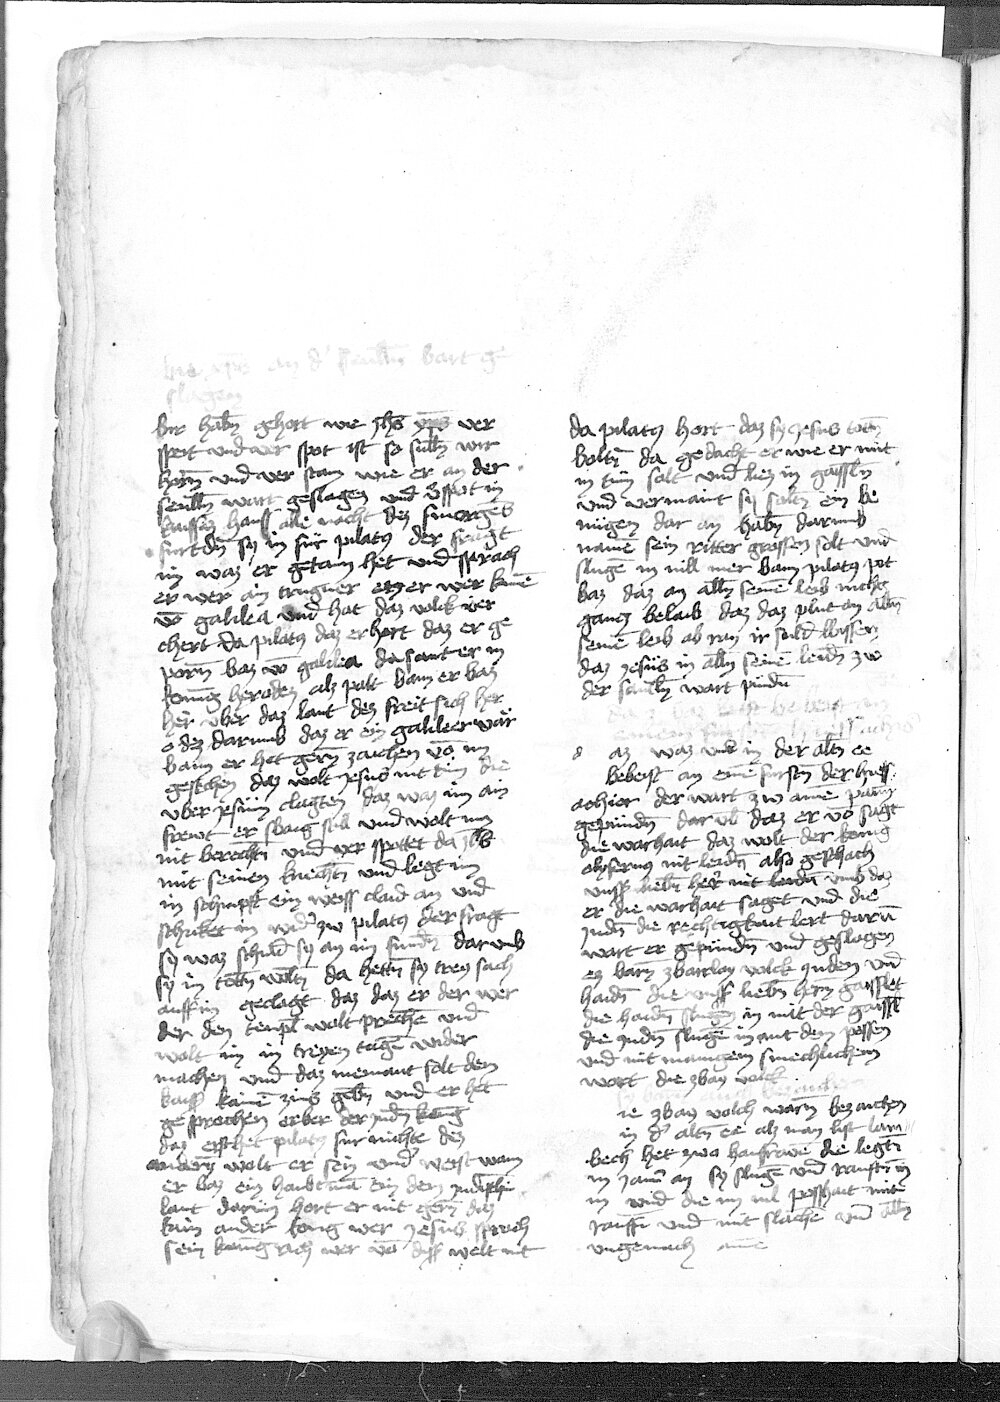 wie xps an d' seulln wart ge
slagen
wir habn gehort wie jhs xps ver
speit und ver spot ist so sulln wir
horn und ver stan wie er an der
seulln wart geslagen und
kayffen hauss alle nacht dez smorgens
furt dn sy in für pilatus der fragt
im waz er getann het und sprach
er wer ain trugner
vō galilea und hat daz volk ver
chert da pilatus daz erhort daz er ge
porn waz vō galilea da sant er in
konig herodez als palt wann er waz
her über daz lant dez freit sich her
odez darumb daz er ein galileer war
wann er het gern zaichen vō im
gesechen daz wolt jesus nit tün die
uber jesum clagten daz waz im ain
frewt er swaig still und wolt im
nit berechtn und ver spottet
mit seinen knechtn und legt im
in schimpf ein weiss claid an und
schiket in wid' zw pilatus der fragt
sy waz schuld sy an im fundn darumb
sy in tötn wöltn da hettn sy treyn sach
auff in geclagt daz daz er der wer
der den tempel wolt preche und
wolt in in treyen tage wider
machen und daz niemant solt dem
kaiser kainē zins gebn und er het
gesprochen er wer der judn konig
daz erst het pilatus fur nichte dez
andern wolt er sein und weist wann
er waz ein haubtmā ein dem judischn
lant darum hort er nit gern daz
kain ander konig wer jesus sprach
sein konigrach wer vō diser welt nit
da pilatus hort daz sy jesus totn
woltn da gedacht er wie er mit
im tun solt und liez in gaissln
und vermaint sy soltn ein be
nügen dar an habn darumb
namē sein ritter grossen solt und
slugē in vill mer wann pilatus pot
waz daz an alln seinē leib nichtz
gantz belaib daz daz plut an alln
seinē leib ab ran ir sulld wissen
daz jesus in alln seinē leidn zw
der saulln wart pundn
az waz uns in der altn ee
beweist an einē furstn der hiess
achior der wart zw ainē paum
gepundn dar üb daz er vō sagt
die warhait daz wolt der konig
olofernus nit leidn also geschach
unss liebn her nit leidn umb daz
er die warhait saget und die
judn die rechtigkait lert darüm
wart er gepundn und geslagen
ez warn zwairlay volck juden und
haidn die unss liebn hern gaisslet
die haidn slugen in mit der gaissl
die judn slugē in mit dem pessen
und mit manigem smechlichem
wort die zway volck
ie zway volch warn bezaichen
in d' altn ee als man list lam
bech het zwo hausfrawē die legtn
im jamer an sy slugē und rauftn in
in und die im vil posshait mitē
rauffn und mit slachē und alln
ungemach amē